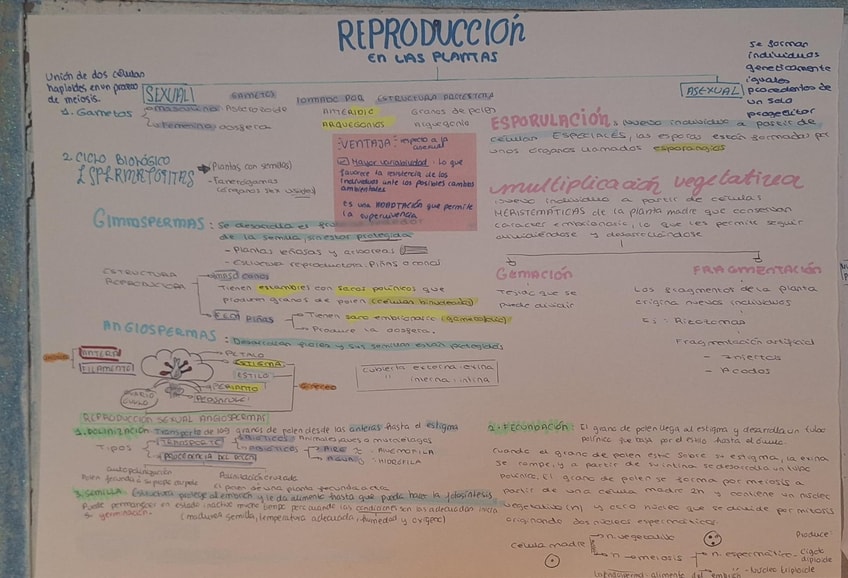 REPRODUCCIÓN
EN LAS PLANTAS
Se forman
individuos
genéticamente
iguales
procedentes de
un solo
progenitor
Unión de dos células
haploides en un proceso
de meiosis.
SEXUAL
ASEXUAL
1. Gametos
GAMETOS
FORMADO POR
ESTRUCTURA PROTECTORA
masculino
Anterozoide
ANTERIDIO
Granos de polen
Femenino
oosfera
ARQUEGONIOS
Arquegonio
VENTAJA: respecto a la
asexual
Mayor variabilidad: lo que
favorece la resistencia de los
individuos ante los posibles cambios
ambientales
es una ADAPTACIÓN que permite
la supervivencia
ESPORULACIÓN: nuevo individuo a partir de
células ESPECIALES, las esporas están formadas por
unos órganos llamados esporangios
2. CICLO BIOLÓGICO
ESPERMATOFITAS
Plantas con semillas
- Fanerógamas
(órganos sex visibles)
multiplicación vegetativa
nuevo individuo a partir de células
MERISTEMÁTICAS de la planta madre que conservan
carácter embrionario, lo que les permite seguir
dividiéndose y desarrollándose
GIMNOSPERMAS: se desarrolla el
de la semilla, sin estar protegida
- Plantas leñosas y arbóreas
- Estructura reproductora: Piñas o conos
ESTRUCTURA
REPRODUCTORA
MASC CONOS
Tienen estambres con sacos polínicos que
producen granos de polen (células binucleadas)
FEM PIÑAS
- Tienen saco embrionario (gametofito)
- Produce la oosfera.
GEMACIÓN
Tejido que se
puede dividir
FRAGMENTACIÓN
Los fragmentos de la planta
origina nuevos individuos
Ej: Rizomas
Fragmentación artificial
- Injertos
- Acodos
ANGIOSPERMAS: Desarrollan flores y sus semillas están protegidas
ANTERA
FILAMENTO
PÉTALO
ESTIGMA
ESTILO
PERIANTO
PEDÚNCULO
OVARIO
ÓVULO
Gineceo
cubierta externa: exina
" interna: intina
REPRODUCCIÓN SEXUAL ANGIOSPERMAS
1. POLINIZACIÓN: Transporte de los granos de polen desde las anteras hasta el estigma
Tipos
TRANSPORTE
BIÓTICOS: Animales: aves o murciélagos
ABIÓTICOS
AIRE: ANEMÓFILA
AGUA: HIDRÓFILA
PROCEDENCIA DEL POLEN
Autopolinización
Polen fecunda a su propio pistilo
Polinización cruzada
El polen de una planta fecunda a otra
3. SEMILLA: Estructura protege al embrión y le da alimento hasta que pueda hacer la fotosíntesis
Puede permanecer en estado inactivo mucho tiempo pero cuando las condiciones son las adecuadas inicia
su germinación. (madurez semilla, temperatura adecuada, humedad y oxígeno)
2. FECUNDACIÓN: El grano de polen llega al estigma y desarrolla un tubo
polínico que baja por el estilo hasta el óvulo.
Cuando el grano de polen está sobre su estigma, la exina
se rompe, y a partir de su intina se desarrolla un tubo
polínico. El grano de polen se forma por meiosis a
partir de una célula madre 2n y contiene un núcleo
vegetativo (n) y otro núcleo que se divide por mitosis
originando dos núcleos espermáticos.
célula madre
n. vegetativo
n meiosis
n. espermático - cigoto
diploide
- núcleo triploide
Produce
Endospermo: alimento del embrión